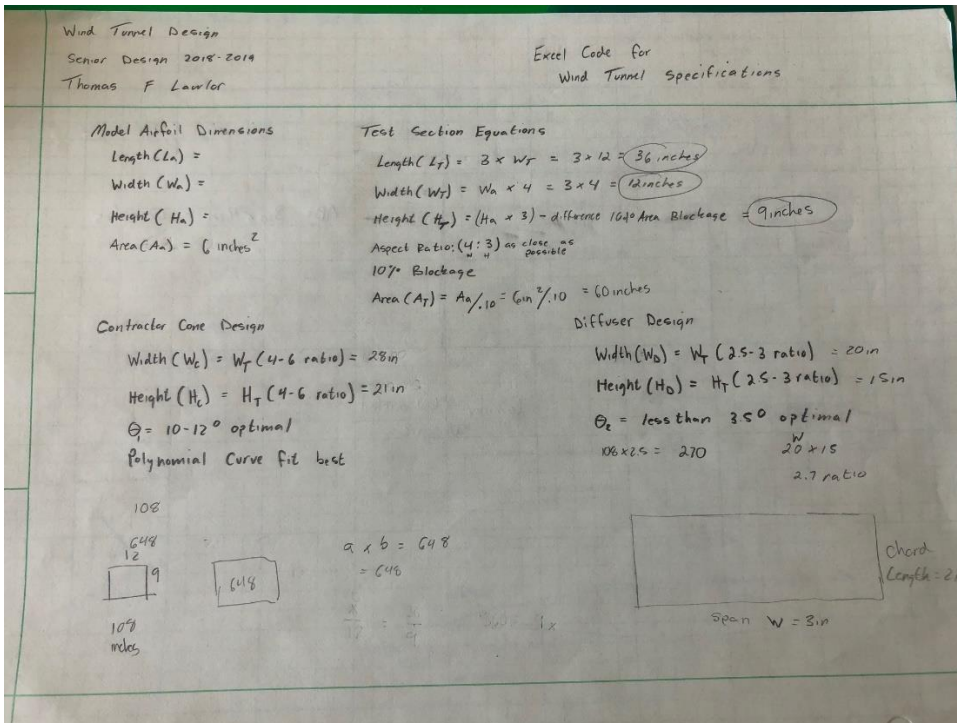 Wind Tunnel Design
Senior Design 2018-2019
Thomas F Lawlor
Excel Code for
Wind Tunnel Specifications
Model Airfoil Dimensions
Length (La) =
Width (Wa) =
Height (Ha) =
Area (Aa) = 6 inches²
Test Section Equations
Length (LT) = 3 x WT = 3 x 12 = 36 inches
Width (WT) = Wa x 4 = 3 x 4 = 12 inches
Height (HT) = (Ha x 3) - difference 10% Area Blockage = 9 inches
Aspect Ratio: (4 : 3) as close as possible
W H
10% Blockage
Area (AT) = Aa/.10 = 6in²/.10 = 60 inches
Contractor Cone Design
Width (Wc) = WT (4-6 ratio) = 28in
Height (Hc) = HT (4-6 ratio) = 21in
θ1 = 10-12° optimal
Polynomial Curve fit best
Diffuser Design
Width (WD) = WT (2.5-3 ratio) = 20in
Height (HD) = HT (2.5-3 ratio) = 15in
θ2 = less than 3.5° optimal
108 x 2.5 = 270
W
20 x 15
2.7 ratio
108
648
12
9
108
648
a x b = 648
= 648
Chord
Length = 2
Span W = 3in